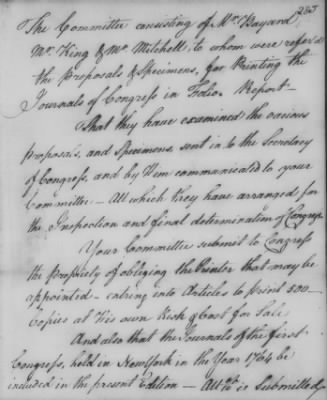 283
The Committee consisting of Mr. Bayard,
Mr. King & Mr. Mitchell, to whom were refered
the Proposals & Specimens, for Printing the
Journals of Congress in Folio. Report—
That they have examined the various
Proposals, and Specimens, sent in to the Secretary
of Congress, and by Him communicated to your
Committee — All which they have arranged for
the Inspection and final determination of Congress
Your Committee submit to Congress
the Propriety of obliging the Printer that may be
appointed — entring into Articles to print 500
Copies at His own Risk & Cost for Sale,
And also that the Journals of the first
Congress, held in New York in the Year 1764 be
included in the present Edition — All wh. is Submitted,